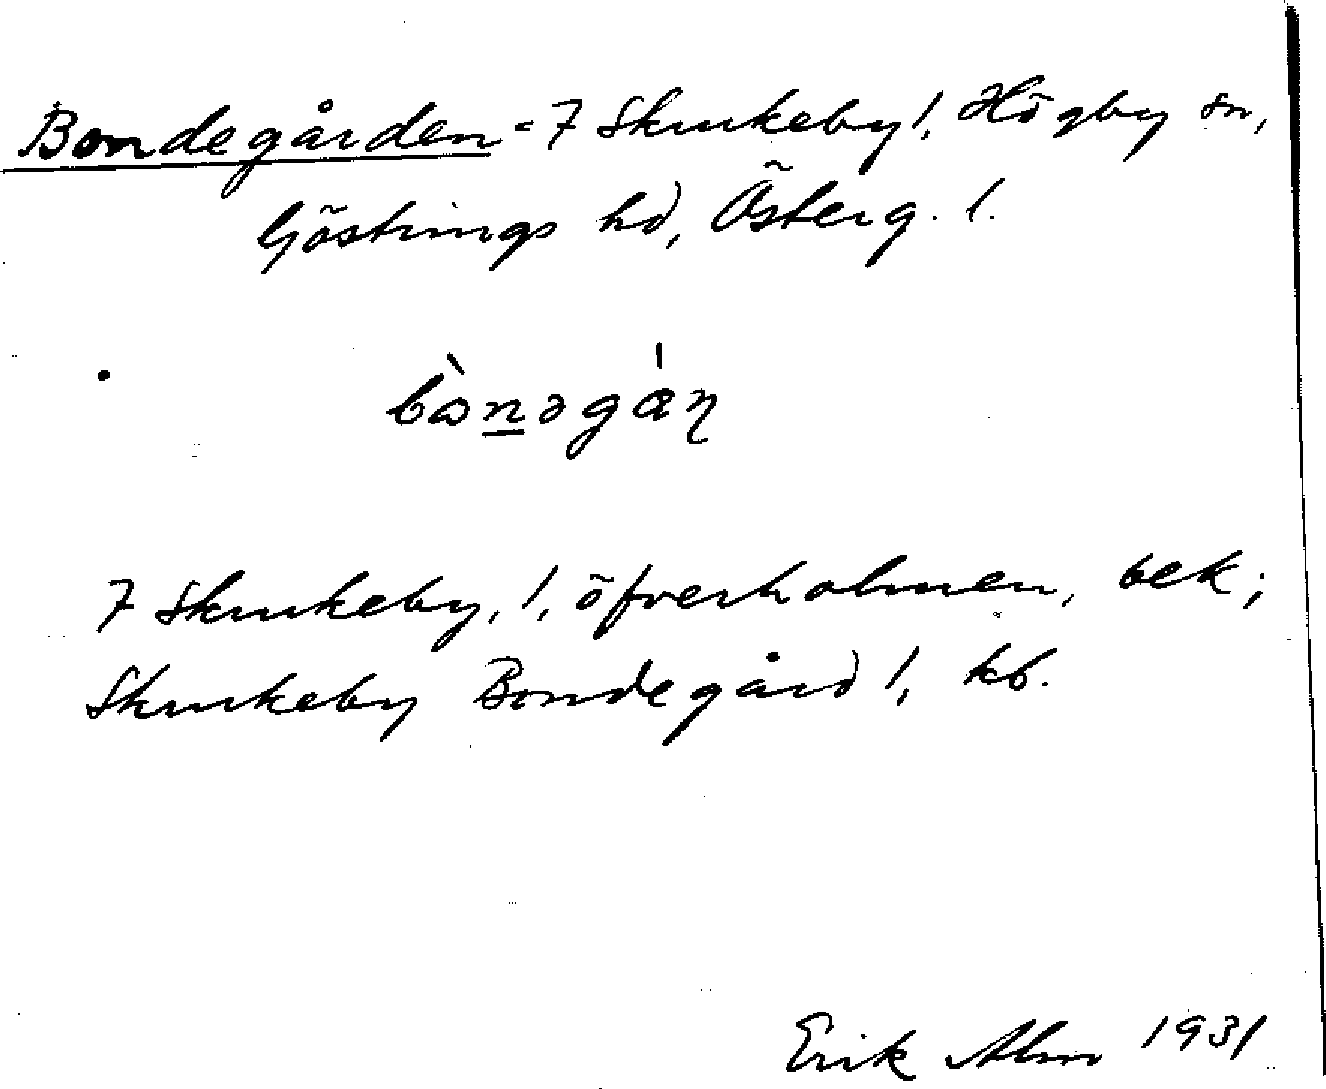 Bondegården = 7 Skrukeby 1, Högby sn,
Göstrings hd, Österg. l.
bònəgáṇ
7 Skrukeby, 1, öfverholmen, bek;
Skrukeby Bondegård 1, kb.
Erik Alm 1931